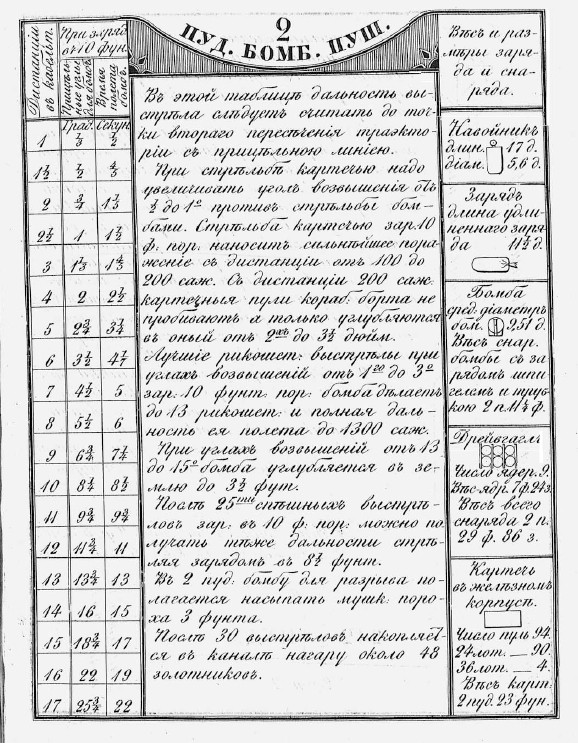 2
ПУД. БОМБ. ПУШ.
Дистанціи въ кабельт.
При заряд.
въ 10 фун.
Прицѣль-
ные углы
для бомб.
Время
полета
бомбъ.
Град. Секун.
1 ⅓ ½
1½ ½ ⅘
2 ¾ 1⅕
2½ 1 1½
3 1⅓ 1⅘
4 2 2½
5 2¾ 3¼
6 3½ 4⅐
7 4½ 5
8 5½ 6
9 6¾ 7¼
10 8¼ 8½
11 9¾ 9¾
12 11¾ 11
13 13¾ 13
14 16 15
15 18¾ 17
16 22 19
17 25¾ 22
Въ этой таблицѣ дальность вы-
стрѣла слѣдуетъ считать до точ-
ки втораго пересѣченія траэкто-
ріи съ прицѣльною линіею.
При стрѣльбѣ картечью надо
увеличивать уголъ возвышенія отъ
½ до 1° противъ стрѣльбы бом-
бами. Стрѣльба картечью зар. 10
ф: пор: наноситъ сильнѣйшее пора-
женіе съ дистанціи отъ 100 до
200 саж. Съ дистанціи 200 саж.
картечныя пули кораб. борта не
пробиваютъ а только углубляются
въ оный отъ 2хъ до 3½ дюйм.
Лучшіе рикошет: выстрѣлы при
углахъ возвышеній отъ 1го до 3°
зар: 10 фунт. пор: бомба дѣлаетъ
до 13 рикошет: и полная даль-
ность ея полета до 1300 саж.
При углахъ возвышеній отъ 13
до 15° бомба углубляется въ зе-
млю до 3½ фут.
Послѣ 25ти спѣшныхъ выстрѣ-
ловъ зар: въ 10 ф. пор: можно по
лучать тѣже дальности стрѣ-
ляя зарядомъ въ 8½ фунт.
Въ 2 пуд: бомбу для разрыва по-
лагается насыпать мушк: поро-
ха 3 фунта.
Послѣ 30 выстрѣловъ, накопляет-
ся въ каналѣ нагару около 48
золотниковъ.
Вѣсъ и раз-
мѣры заря-
да и сна-
ряда.
Навойникъ
длин. 17 д.
діам. 5,6 д.
Зарядъ
длина удли-
неннаго заря-
да 11¼ д.
Бомба
сред. діаметръ
бом. 9,51 д.
Вѣсъ снар.
бомбы съ за-
рядомъ шпи-
гелемъ и труб-
кою 2 п. 11¼ ф.
Дрейфгагелъ
Число ядер. 9.
Вѣс. ядр. 7 ф. 24 з.
Вѣсъ всего
снаряда 2 п.
29 ф. 86 з.
Картечь
въ желѣзномъ
корпусѣ.
Число пуль 94.
24 лот. — 90.
36 лот. — 4.
Вѣсъ карт:
2 пуд. 23 фун.